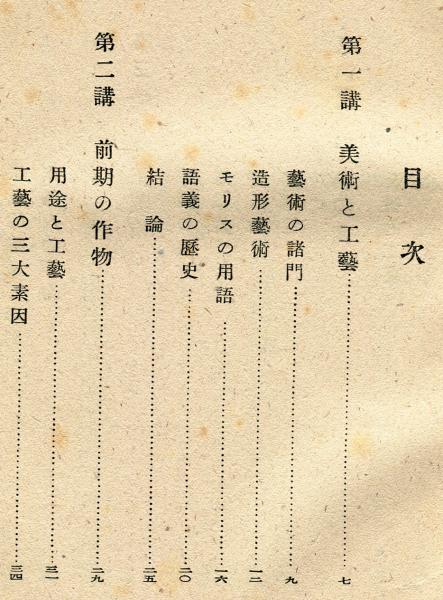 目次
第一講 美術と工藝……………七
藝術の諸門……………九
造形藝術……………一二
モリスの用語……………一六
語義の歷史……………二〇
結論……………二五
第二講 前期の作物……………二九
用途と工藝……………三一
工藝の三大素因……………三四